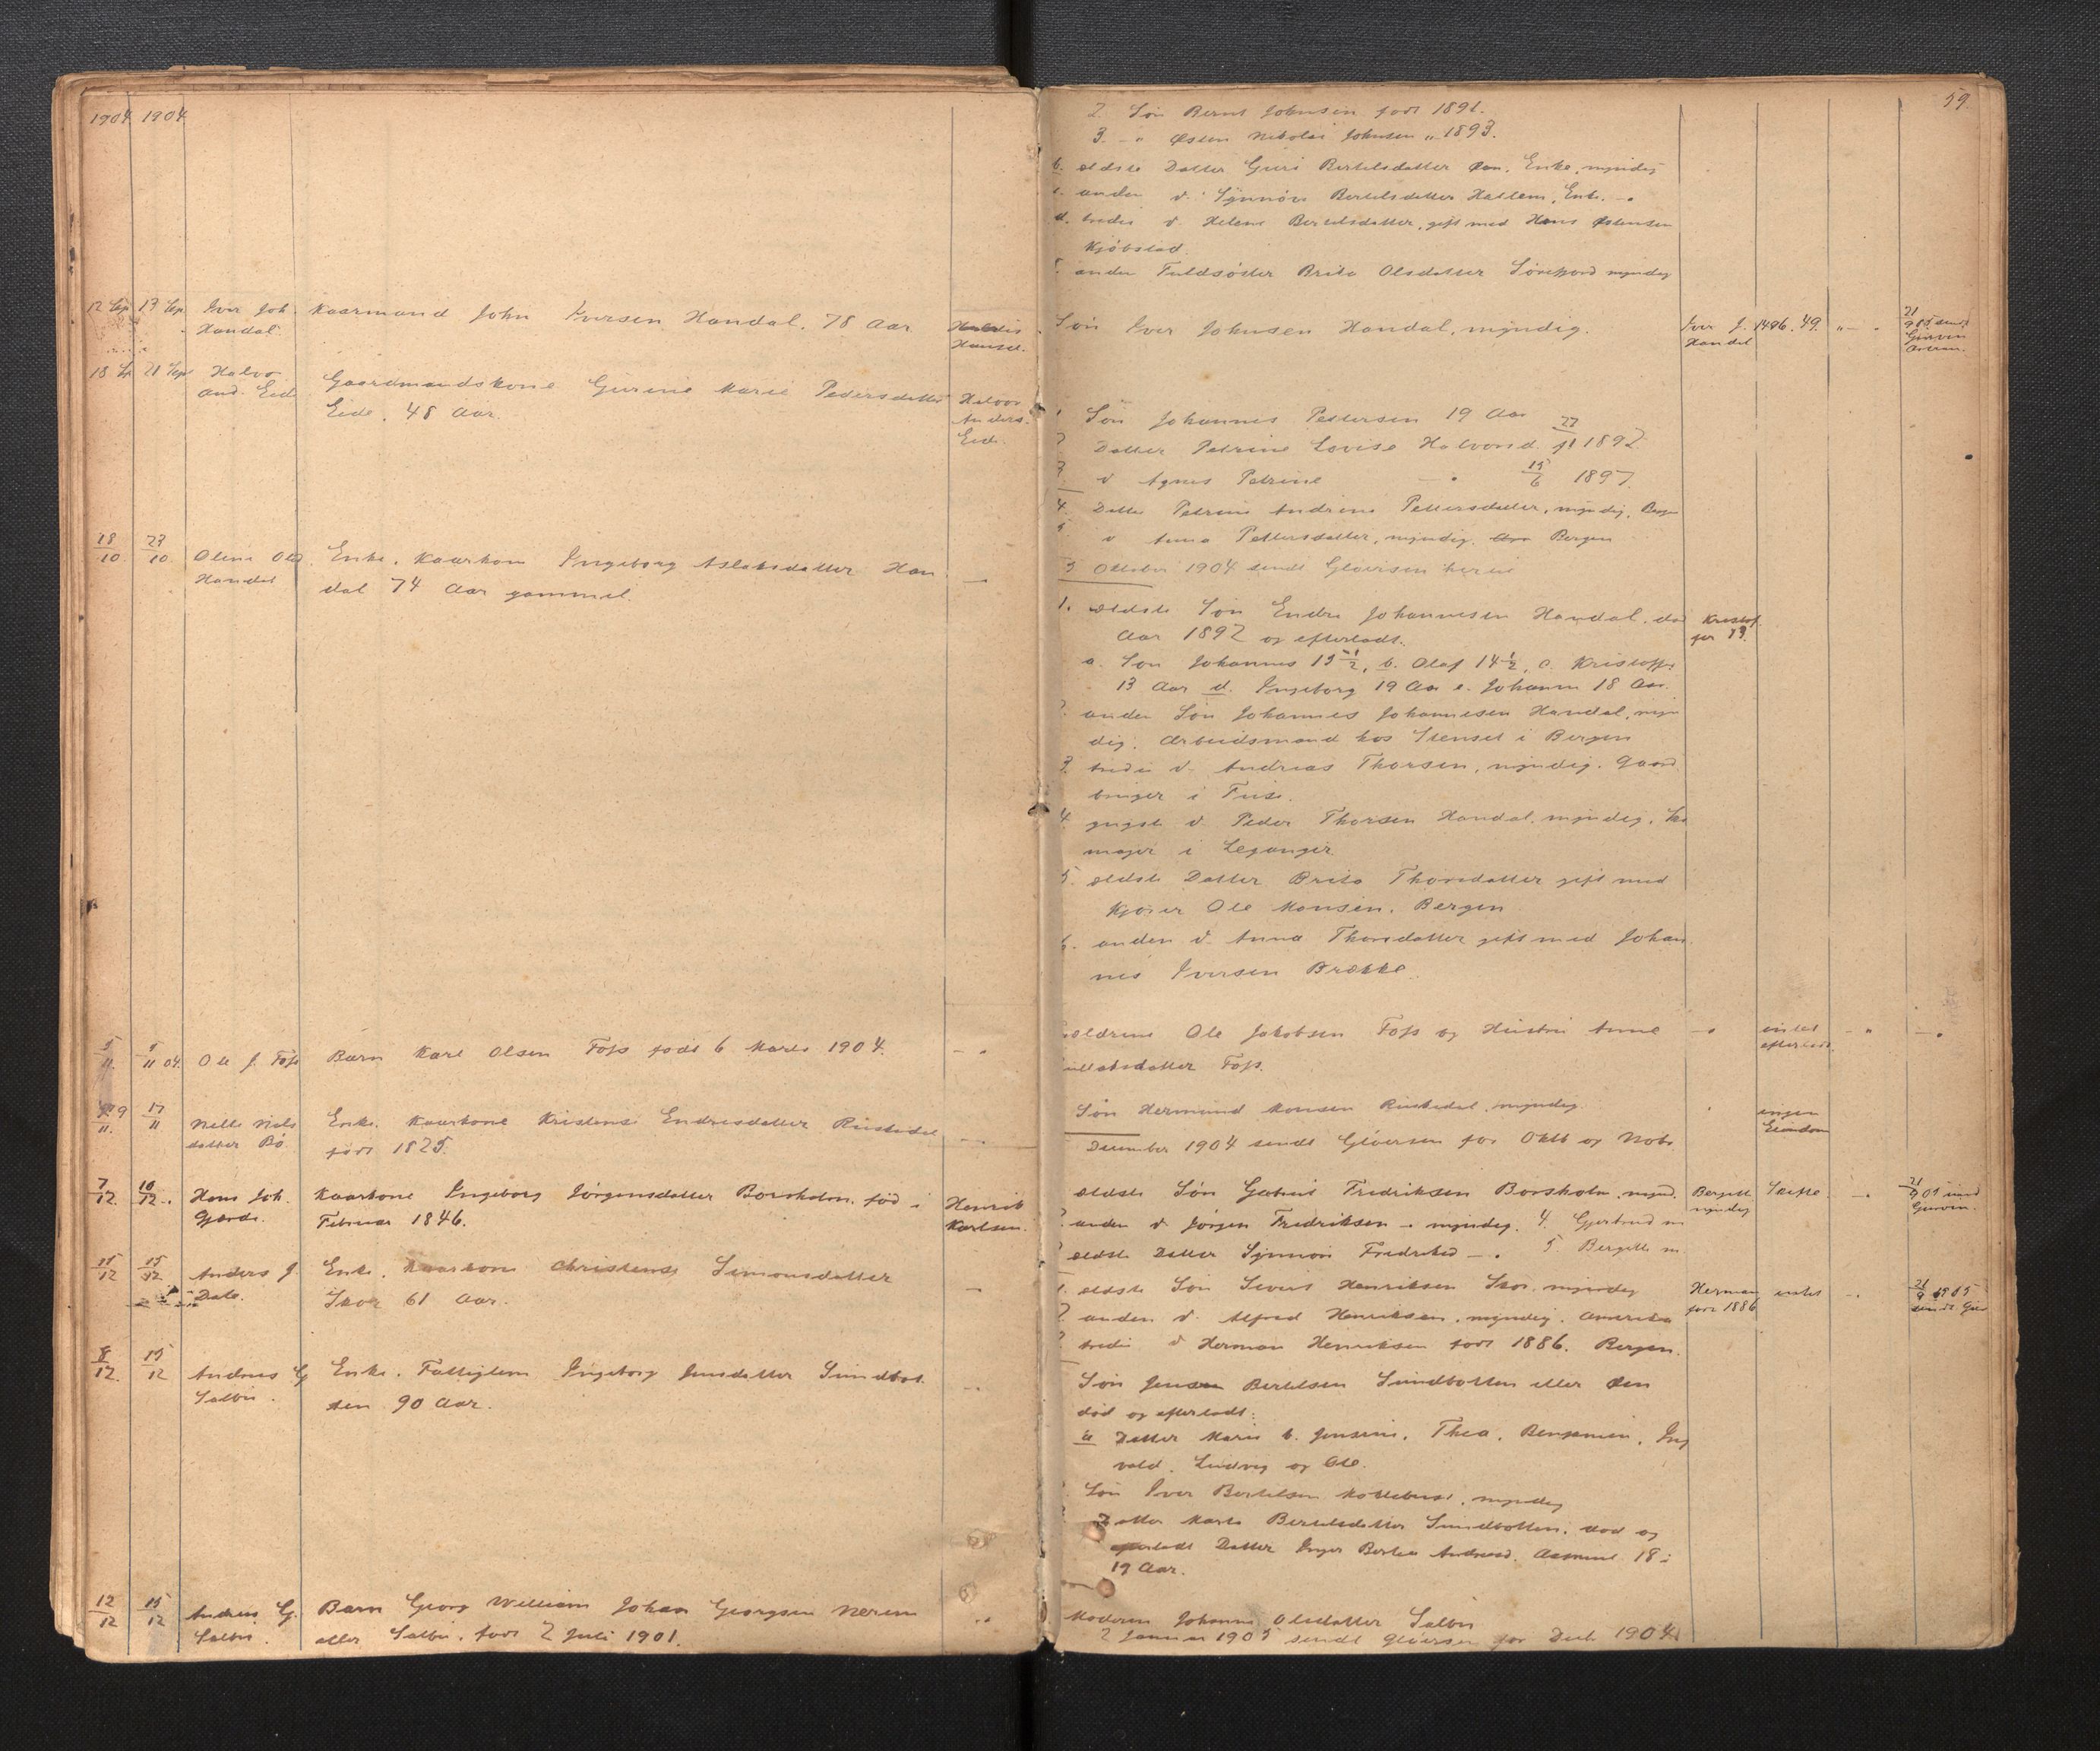 1904 1904
12 Sep 13 Sep Iver Joh. Kaarmand John Iversen Handal. 78 Aar
Handal.
18 21 Sep Halvor Gaardmandskone Gurine Marie Pedersdatter Halvor
And. Eide Eide. 48 Aar. Anders.
Eide.
18/10 23/10 Oline Ols Enke. Kaarkone Ingeborg Aslaksdatter Han
Handal dal 74 Aar gammel.
5/11. 5/11 04. Ole J. Foss Barn Karl Olsen Foss født 6 Marts 1904.
9/11. 17/11 Nille Nels Enke. Kaarkone Kristense Endresdatter Risedal
datter Bø. født 1825.
7/12. 10/12. Hans Joh. Kaarkone Ingeborg Jørgensdatter Borsholm. fød i Henrik
Gjerde. Februar 1846. Karlsen.
15/12 15/12. Anders J. Enke. Kaarkone Christense Simonsdatter
Dale. Skor 61 Aar.
8/12. 15/12 Andreas G. Enke. Fattiglem Ingeborg Jensdatter Sundbot
Salbu. ten 90 Aar.
12/12 15/12 Andreas G. Barn Georg William Johan Georgsen Nerem
Salbu. eller Salbu. født 2 Juli 1901.
59
2. Søn Bernt Johnsen født 1891.
3. " Østen Nikolai Johnsen " 1893.
b. ældste Datter Guri Bertelsdatter Enke, myndig
c. anden d. Synnøve Bertelsdatter Hatlem, Enke.
d. tredie d. Helene Bertelsdatter, gift med Hans Østensen
Kjøbstad.
anden Fuldsøster Brita Olsdatter Sørefjord myndig
Søn Iver Johnsen Handal, myndig. Iver J. 1486. 49.
Handal
Søn Johannes Pettersen 19 Aar
2 Datter Petrine Lovise Halvorsd. 27/11 1892.
3 d Agnes Petrine 15/6 1897.
4. Datter Petrine Andrine Pettersdatter, myndig, Bergen
5 d Anna Pettersdatter, myndig. Bergen
3 Oktober 1904 sendt Gløersen herue
1. ældste Søn Endre Johannesen Handal. død Kristof
Aar 1892 og efterladt. fer 13.
a. Søn Johannes 15 1/2, b. Olaf 14 1/2, c. Kristoffer
13 Aar d. Ingeborg 19 Aar e. Johanne 18 Aar.
anden Søn Johannes Johannesen Handal, myn
dig, Arbeidsmand hos Stensel i Bergen
3. tredie d. Andreas Thorsen, myndig. Gaard
bruger i Fuse.
4. yngste d. Peder Thorsen Handal, myndig, Sko
mager i Leganger.
5. ældste Datter Brita Thorsdatter gift med
Kjører Ole Monsen. Bergen
6. anden d. Anna Thorsdatter gift med Johan
nes Iversen Brække.
Forældrene Ole Jakobsen Foss og Hustru Anne intet
datter Foss. efterladt.
Søn Hermund Monsen Risedal, myndig ingen
Eiendom
December 1904 sendt Gløersen for Oktb og Novbr.
ældste Søn Gabriel Fredriksen Borsholm, mynd. Bergitte Skifte
2. anden d. Jørgen Fredriksen - myndig. 4. Gjertrud m myndig
ældste Datter Synnøve Fredriksd 5. Bergitte m.
1. ældste Søn Sivert Henriksen Skor. myndig Herman intet 21/9 1905
2 anden d. Alfred Henriksen, myndig. Amerika født 1886
3 tredie d Herman Henriksen født 1886. Bergen.
Søn Jens Bertelsen Sundbotten eller Øen
død og efterladt:
a Datter Marie b. Jensine. Thea. Benjamin. Ing
vald. Ludvig og Ole.
Søn Iver Bertelsen myndig
Datter Marte Bertelsdatter Sundbotten. død og
efterladt Datter Inger Bertea Andreasd. 18 à
19 Aar.
Moderen Johanne Olsdatter Salbu
2 Januar 1905 sendt Gløersen for Decb 1904